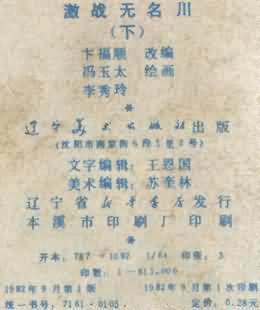 激战无名川
（下）
卞福顺 改编
冯玉太 绘画
李秀玲
辽宁美术出版社出版
(沈阳市南京街6段1里2号)
文字编辑：王恩国
美术编辑：苏奎林
辽宁省新华书店发行
本溪市印刷厂印刷
开本：787×1092 1/64 印张：3
印数：1—815,000
1982年9月第1版 1982年9月第1次印刷
统一书号：7161·0105 定价：0.28元